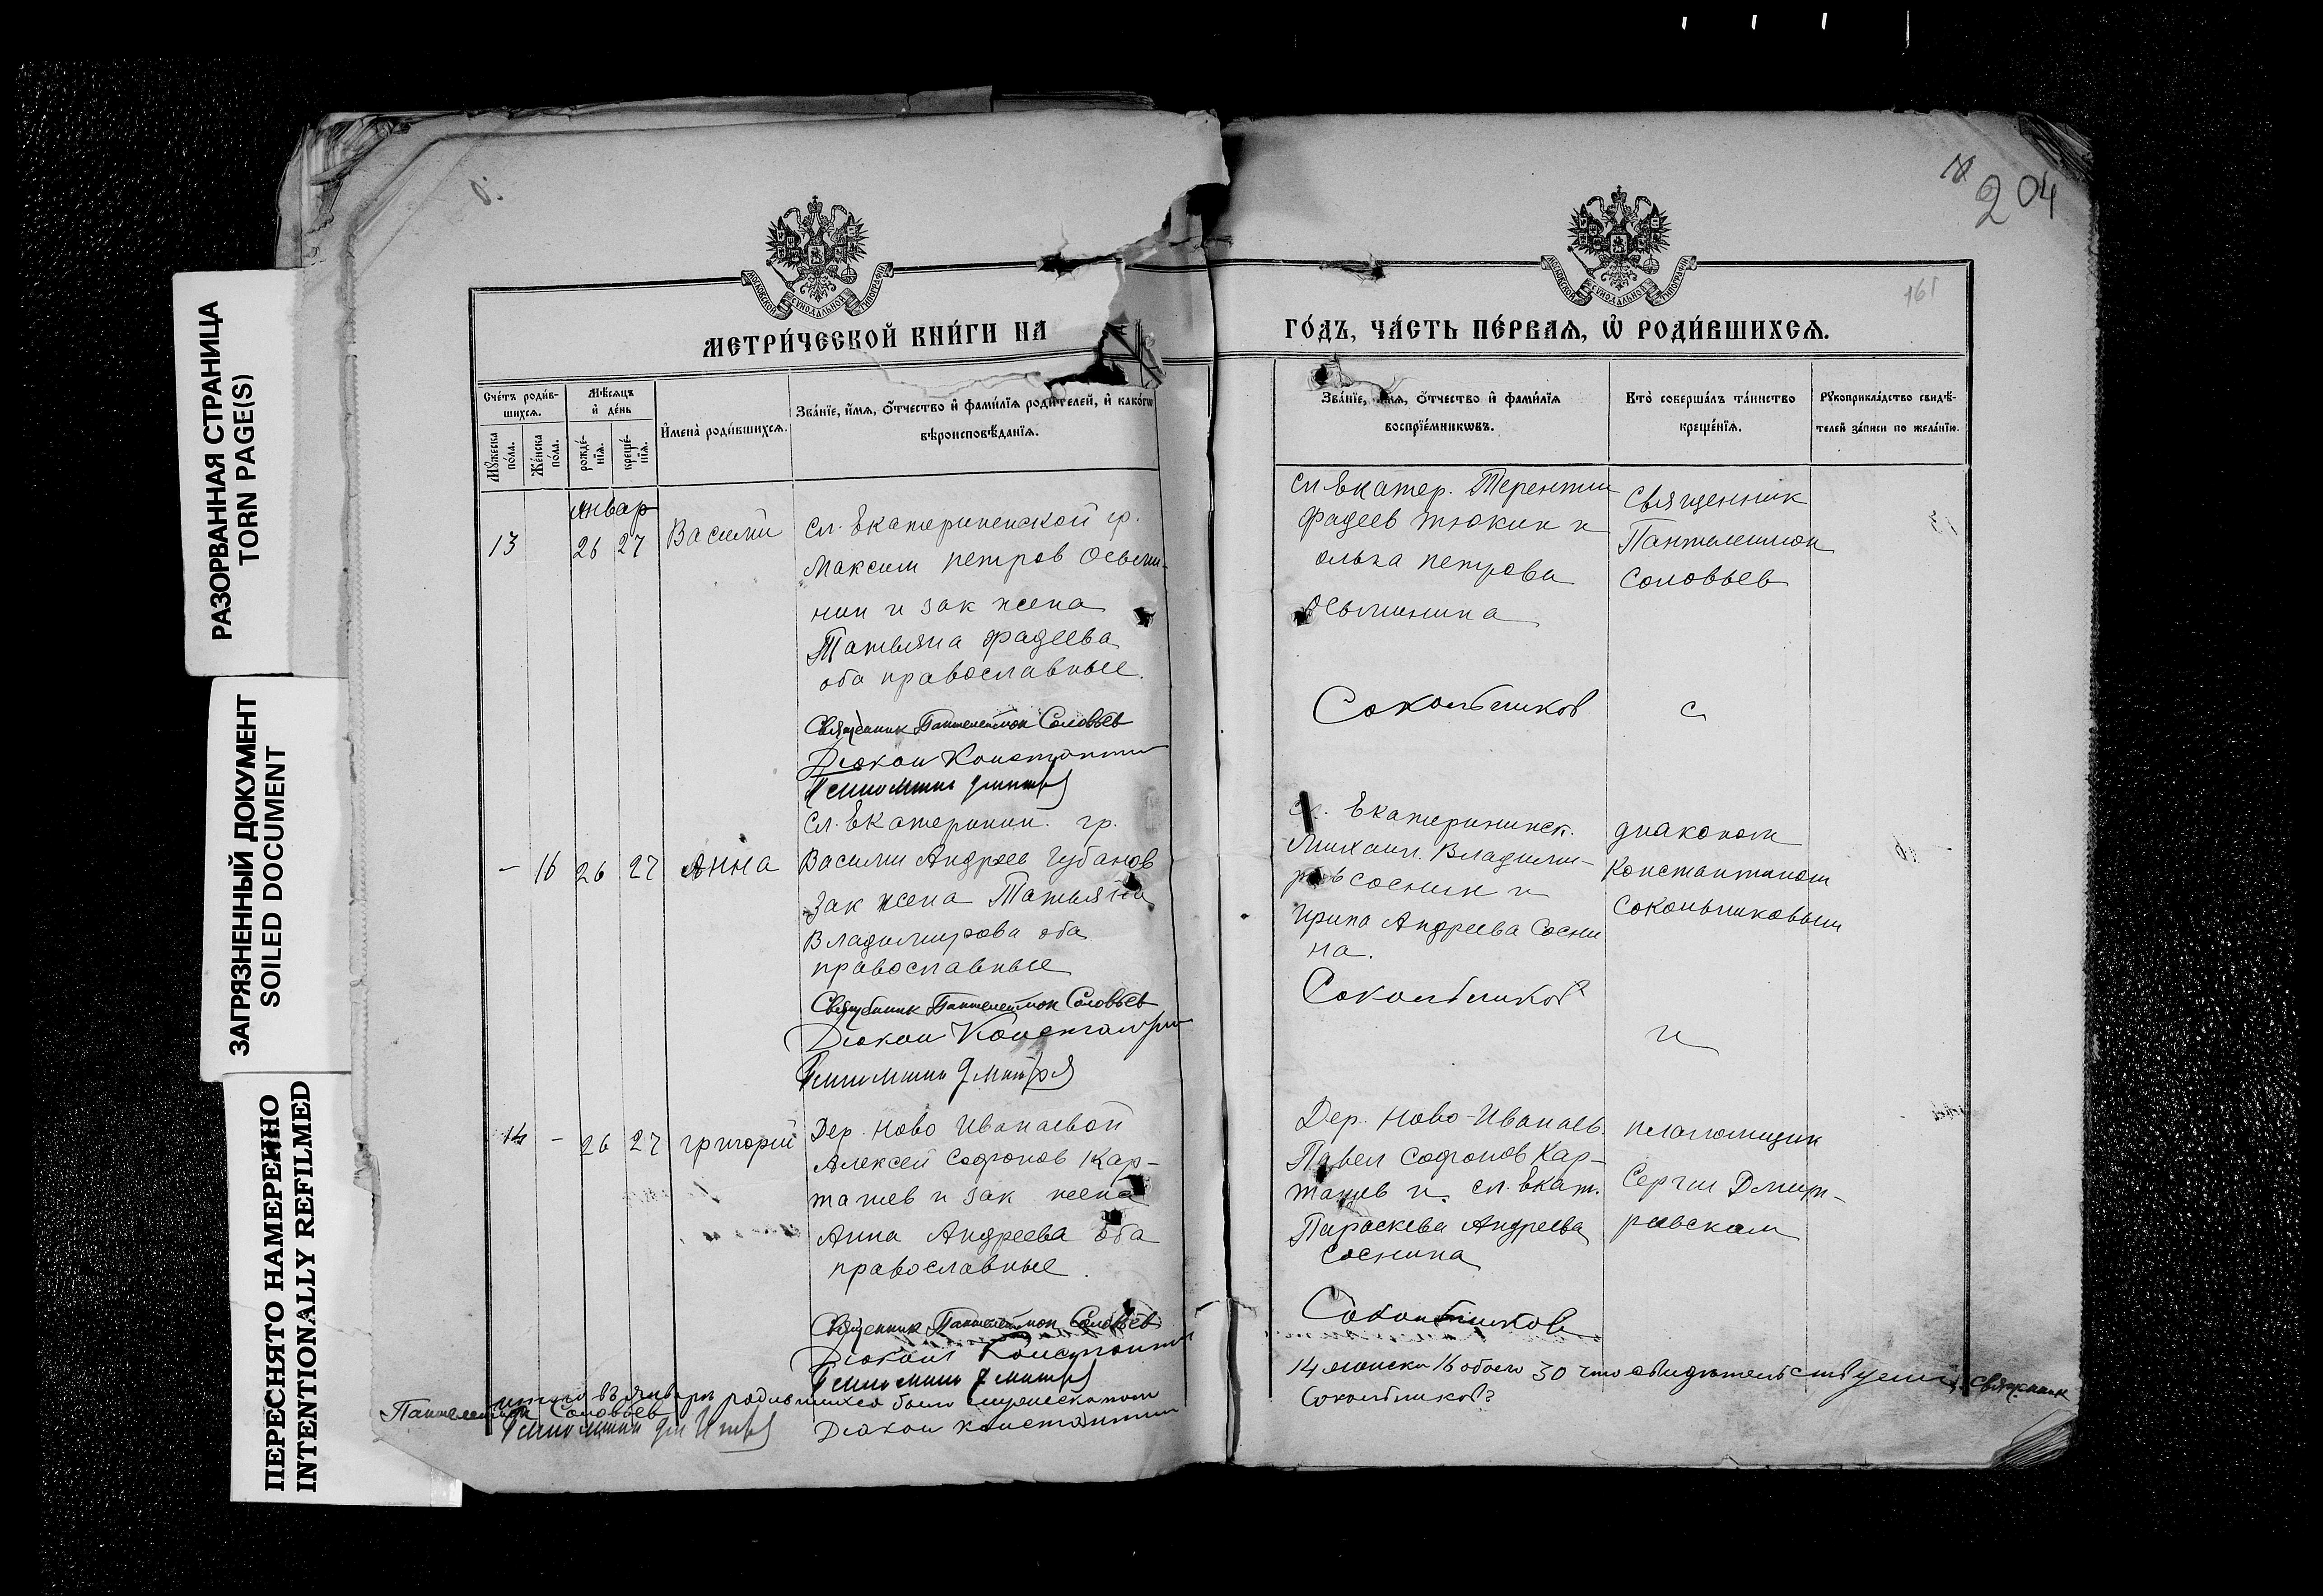 РАЗОРВАННАЯ СТРАНИЦА
TORN PAGE(S)
ЗАГРЯЗНЕННЫЙ ДОКУМЕНТ
SOILED DOCUMENT
ПЕРЕСНЯТО НАМЕРЕННО
INTENTIONALLY REFILMED
204
161
МОСКОВСКОЙ СѴНОДАЛЬНОЙ ТИПОГРАФІИ
МОСКОВСКОЙ СѴНОДАЛЬНОЙ ТИПОГРАФІИ
МЕТРИ́ЧЕСКОЙ КНИ́ГИ НА
ГО́ДЪ, ЧА́СТЬ ПЕ́РВАѦ, Ѡ҆ РОДИ́ВШИХСѦ.
Сче́тъ роди́в-
шихсѧ.
Мѣ́сѧцъ
и҆ де́нь
Мꙋ́жеска
по́ла.
Же́нска
по́ла.
рожде́-
нїѧ.
креще́-
нїѧ.
И҆мена̀ роди́вшихсѧ.
Зва́нїе, и҆́мѧ, ѻ҆́тчество и҆ фами́лїѧ роди́телей, и҆ како́гѡ
вѣроисповѣ́данїѧ.
Зва́нїе, и҆́мѧ, ѻ҆́тчество и҆ фами́лїѧ
воспрїе́мникѡвъ.
Кто̀ соверша́лъ та́инство
креще́нїѧ.
Рꙋкоприкла́дство свидѣ́-
телей за́писи по жела́нїю.
январ
13 26 27 Василий
сл. Екатерининской гр.
Максим петров Осьми-
нин и зак жена
Татьяна фадеева
оба православные.
Священник Пантелеймон Соловьев
Диакон Константин
сл Екатер. Терентии
фадеев тюкин и
ольга петрова
Осьминина
Сокольников
Священник
Пантелеимон
Соловьев
с
- 16 26 27 Анна
сл. Екатеринин. гр.
Василий Андреев Губанов
зак жена Татьяна
Владимирова оба
православные
Священник Пантелеймон Соловьев
Диакон Константин
сл. Екатерининск.
Михаил. Владими-
ров соснин и
Ирина Андреева Сосни
на.
Сокольников
диаконом
Константином
Сокольниковым
и
14 - 26 27 григорий
Дер. Ново Иванаевой
Алексей Софронов Кар-
ташев и зак жена
Анна Андреева оба
православные.
Священник Пантелеймон Соловьев
Диакон Константин
Дер. Ново-Иванаев.
Павел Софронов Кар-
ташев и сл. Екат.
Параскева Андреева
Соснина
Сокольников
псаломщик
Сергии Дмит-
риевском
итого въ январе родившихся было мужеска пола
14 женска 16 обоего 30 что свидетельствуем Священник
Пантелеймон Соловьев
Диакон Константин
Сокольников